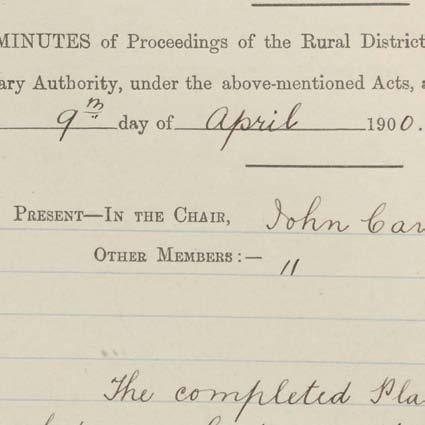 MINUTES of Proceedings of the Rural District
ary Authority, under the above-mentioned Acts, a
9th day of April 1900.
PRESENT—IN THE CHAIR, John Car
OTHER MEMBERS:— "
The completed Pla